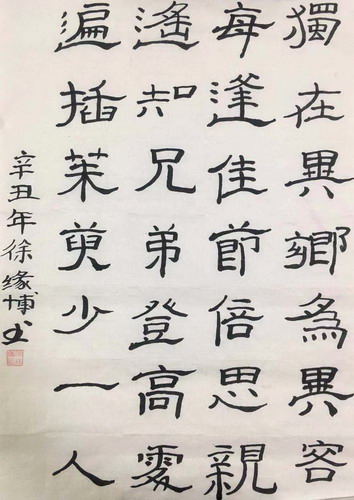 獨在異鄉為異客
每逢佳節倍思親
遙知兄弟登高處
遍插茱萸少一人
辛丑年徐缘博书